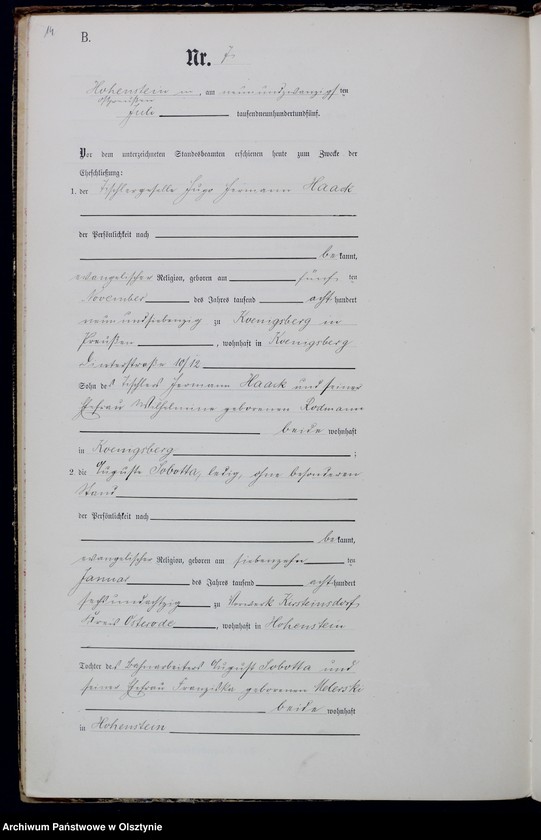 14
B.
Nr. 7
Hohenstein in, am neunundzwanzigsten
Ostpreußen
Juli tausendneunhundertundfünf.
Vor dem unterzeichneten Standesbeamten erschienen heute zum Zwecke der
Eheschließung:
1. der Tischlergeselle Hugo Hermann Haack
der Persönlichkeit nach
bekannt,
evangelischer Religion, geboren am fünften
November des Jahres tausend achthundert
neunundsiebenzig zu Koenigsberg in
Preußen, wohnhaft in Koenigsberg
10/12
Sohn des Tischlers Hermann Haack und seiner
Ehefrau Wilhelmine geborenen Rodmann
beide wohnhaft
in Koenigsberg;
2. die Auguste Sobotta, ledig, ohne besonderen
Stand
der Persönlichkeit nach
bekannt,
evangelischer Religion, geboren am siebenzehnten
Januar des Jahres tausend achthundert
sechsundachtzig zu Vorwerk Kersteinsdorf,
Kreis Osterode, wohnhaft in Hohenstein
Tochter des Bahnarbeiters August Sobotta und
seiner Ehefrau Franziska geborenen
beide wohnhaft
in Hohenstein
Archiwum Państwowe w Olsztynie